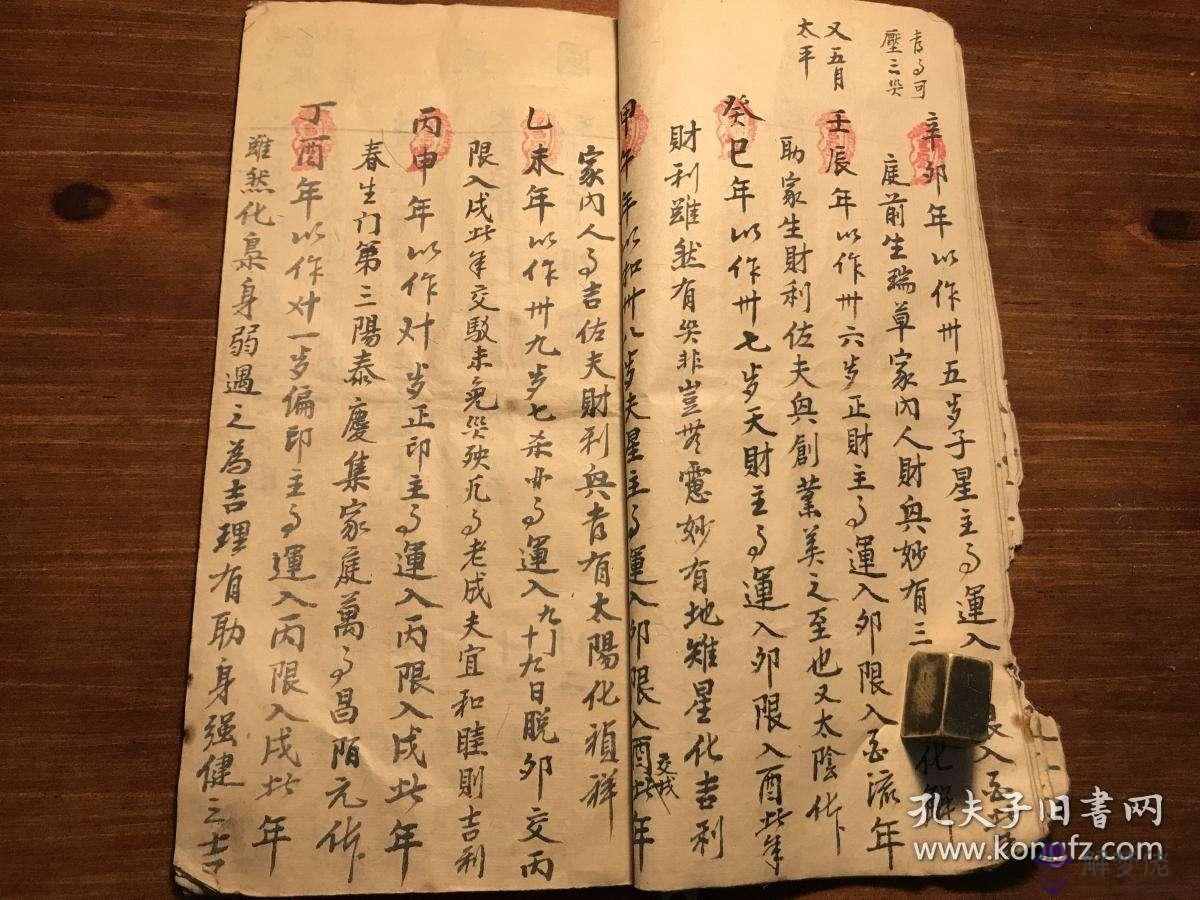 喜的可
壓三災
又五月
太平
辛卯年以作卅五岁子星主的運入 限入酉
庭前生瑞草家内人財興妙有三 化解
壬辰年以作卅六岁正財主的運入卯限入酉流年
助家生財利佐夫興創業美之至也又太陰化卜
癸巳年以作卅七岁天財主的運入卯限入酉此年
財利雖然有災非豈無慮妙有地雉星化吉利
甲午年以和卅八岁夫星主的運入卯限入酉此年
交戌
家内人的吉佐夫財利興者有太陽化禎祥
乙未年以作卅九岁七杀亦的運入九月十九日脱卯交丙
限入戌此年交馭未免災殃凡的老成夫宜和睦則吉利
丙申年以作对岁正印主的運入丙限入戌此年
春生门第三陽泰慶集家庭萬的昌陌元作
丁酉年以作对一岁偏印主的運入丙限入戌此年
雖然化梟身弱遇之為吉理有助身强健之吉
孔夫子旧書网
www.kongfz.com
解梦佬